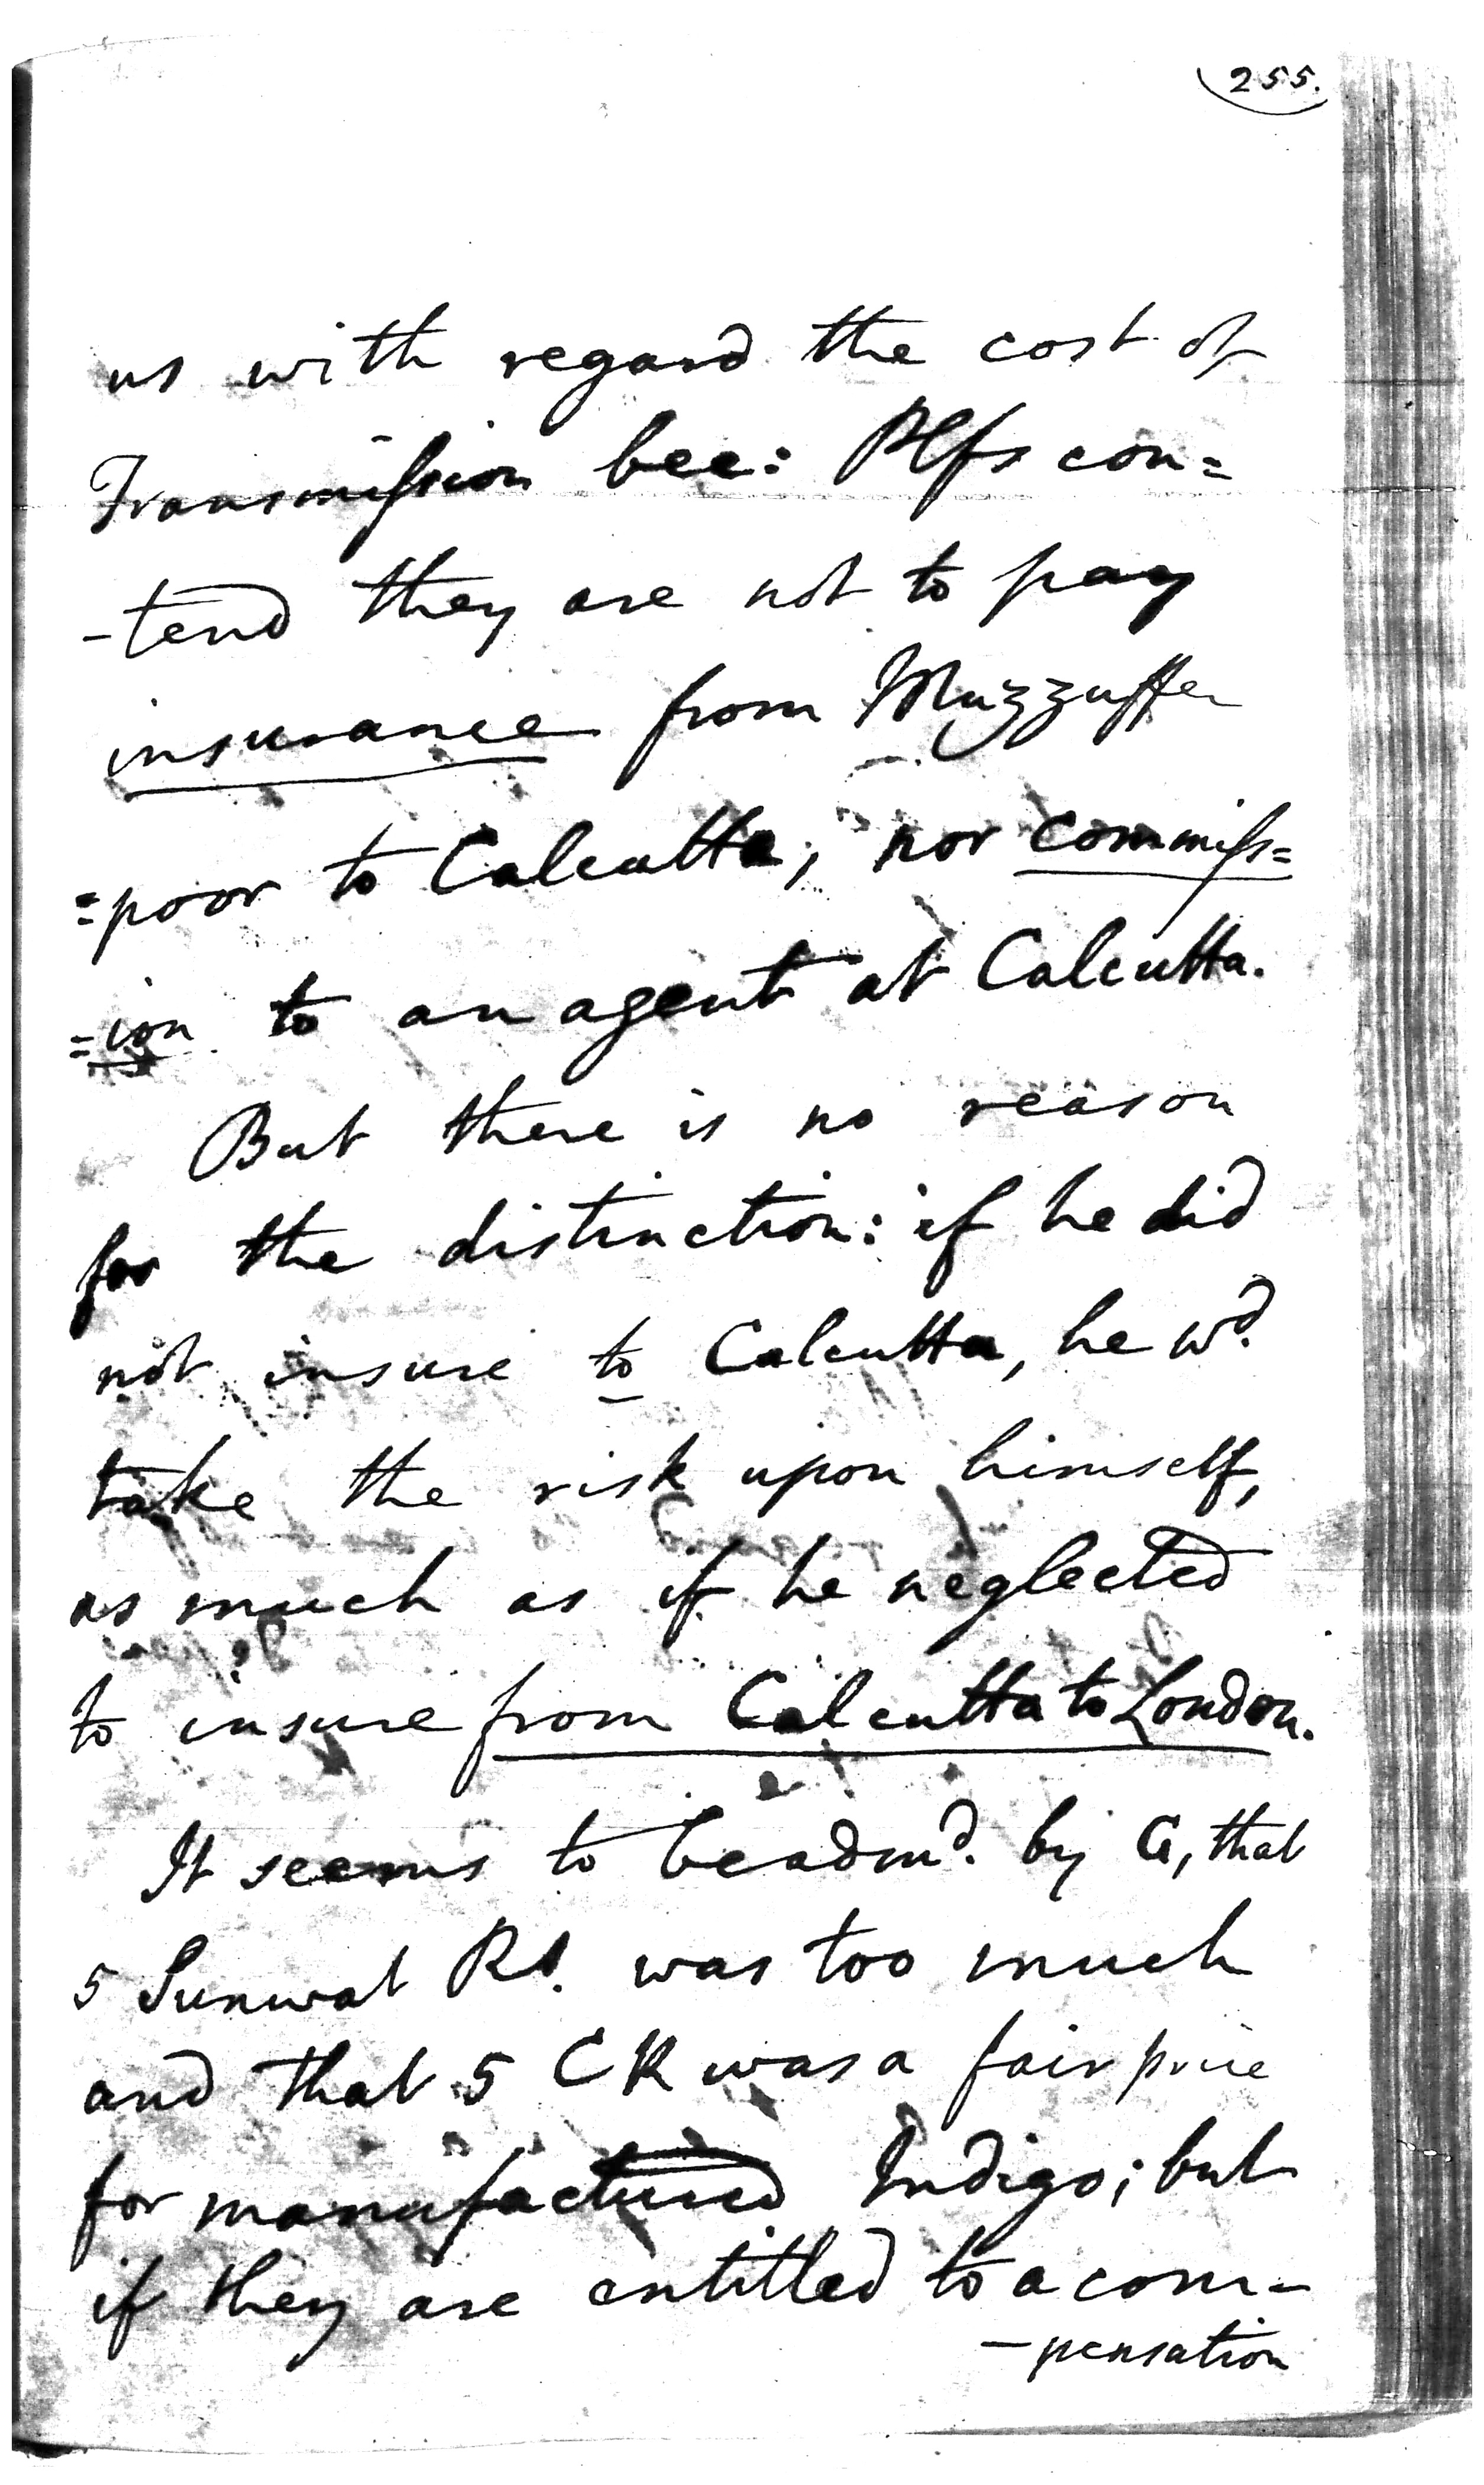 255.
us with regard the cost of
Transmission bec: Plfs con=
-tend they are not to pay
insurance from Muzzuffer
=poor to Calcutta; nor commiss=
=ion to an agent at Calcutta.
But there is no reason
for the distinction: if he did
not insure to Calcutta, he wd.
take the risk upon himself,
as much as if he neglected
to insure from Calcutta to London.
It seems to be admd. by G, that
5 Sunwat Rs. was too much
and that 5 CR was a fair price
for manufactured Indigo; but
if they are entitled to a com-
-pensation